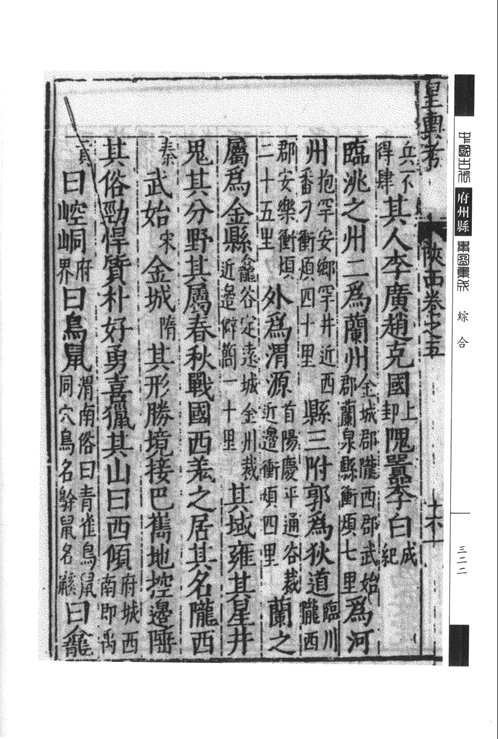 皇輿考
陝西卷之五
兵不得肆其人李廣趙充國上邽隗囂李白成紀
臨洮之州二為蘭州金城郡隴西郡武始郡蘭泉縣衝煩七里為河
州抱罕安鄉罕井近西番刁衝煩四十里縣三附郭為狄道隴西臨川
郡安樂衝煩二十五里外為渭源首陽慶平通谷裁近邊衝煩四里蘭之
屬為金縣龕谷定遠城金州裁近邊僻簡一十里其域雍其星井
鬼其分野其屬春秋戰國西羗之居其名隴西
秦武始宋金城隋其形勝境接巴舊地控邊陲
其俗勁悍質朴好勇喜獵其山曰西傾府城西南即禹
貢曰崆峒府界曰鳥鼠渭南俗曰青雀鳥鼠同穴鳥名鵌鼠名鼵曰龕
中國古代
府州縣
輿圖集成
綜合
三二二